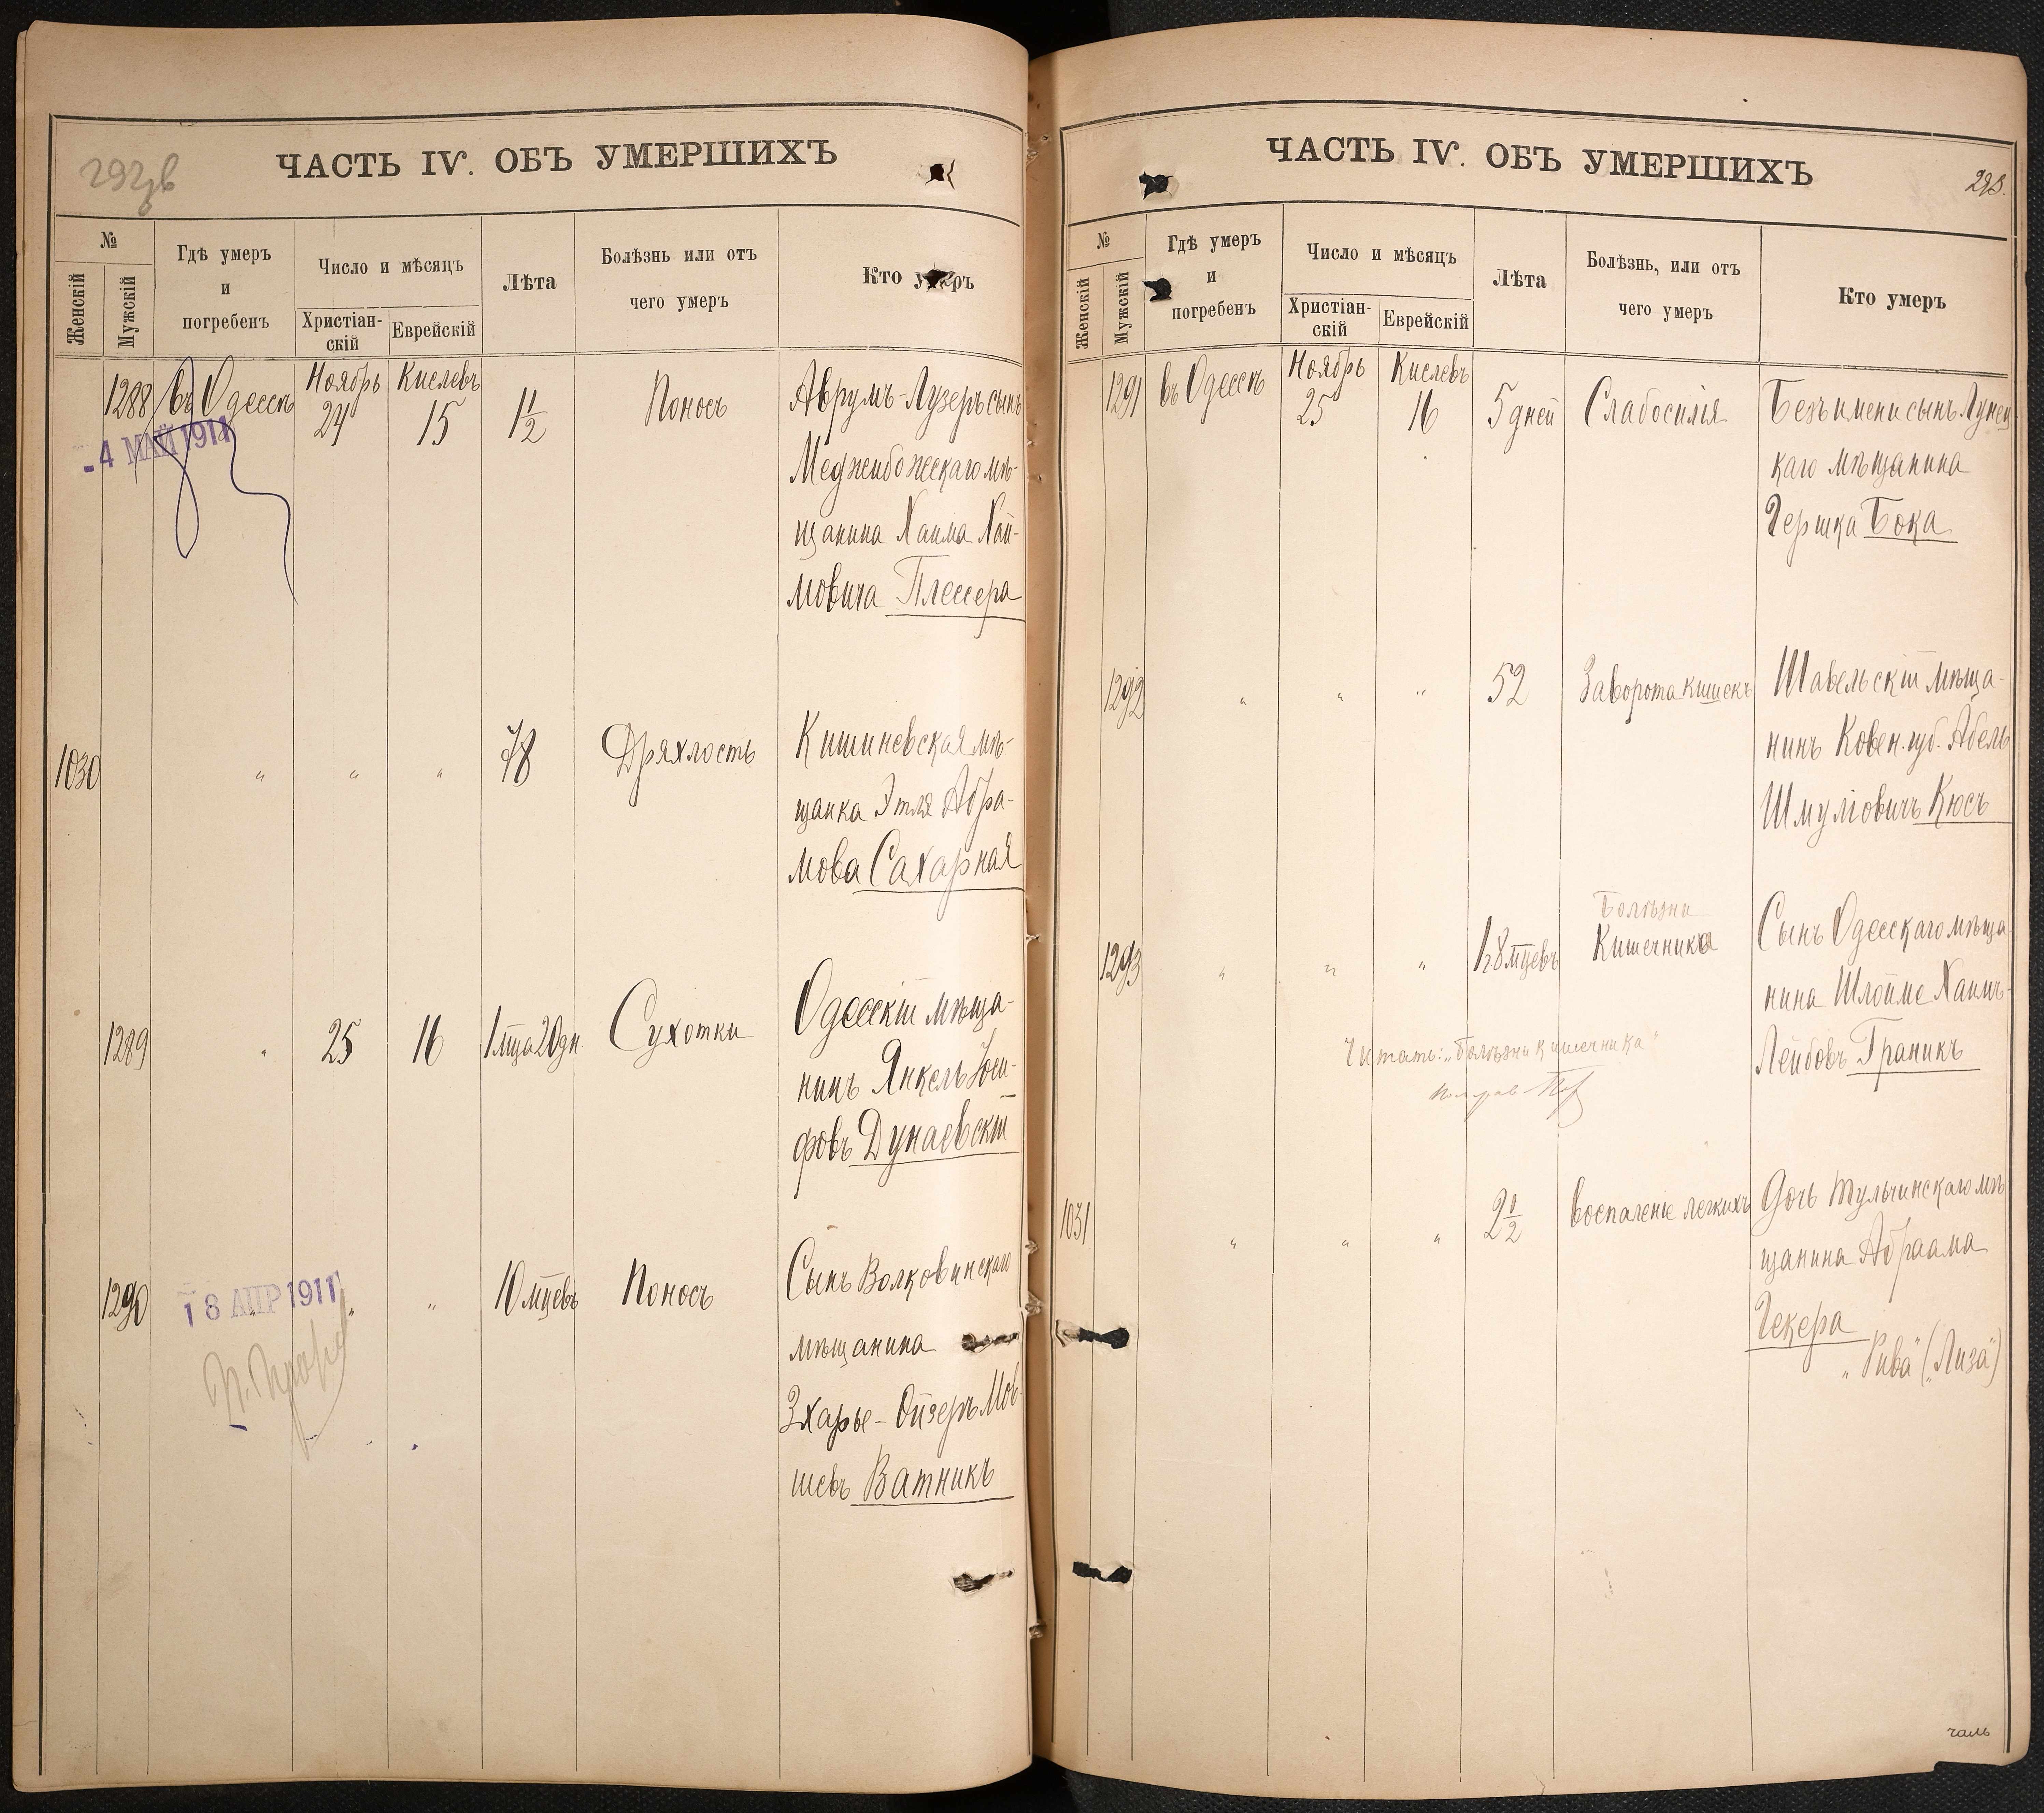 293в
ЧАСТЬ IV. ОБЪ УМЕРШИХЪ
№
Женскій
Мужскій
Гдѣ умеръ
и
погребенъ
Число и мѣсяцъ
Христіан-
скій
Еврейскій
Лѣта
Болѣзнь или отъ
чего умеръ
Кто умеръ
1288 въ Одессѣ Ноябрь 24 Кислевъ 15 1½ Поносъ Аврумъ-Лузеръ сынъ
Меджибожскаго мѣ-
щанина Хаима Хай-
мовича Плессера
- 4 МАЙ 1911
1030 " " " 78 Дряхлость Кишиневская мѣ-
щанка Этля Абра-
мова Сахарная
1289 " 25 16 1 мца 20 дн Сухотки Одесскій мѣща-
нинъ Янкель Юси-
фовъ Дунаевскій
1290 " " 10 мцевъ Поносъ Сынъ Волковинскаго
мѣщанина
Зхарье-Ойзеръ Мов-
шевъ Ватникъ
18 АПР 1911
ЧАСТЬ IV. ОБЪ УМЕРШИХЪ
293.
№
Женскій
Мужскій
Гдѣ умеръ
и
погребенъ
Число и мѣсяцъ
Христіан-
скій
Еврейскій
Лѣта
Болѣзнь, или отъ
чего умеръ
Кто умеръ
1291 въ Одессѣ Ноябрь 25 Кислевъ 16 5 дней Слабосилія Безъ имени сынъ Лунец
каго мѣщанина
Гершка Бока
1292 " " " 52 Заворота кишекъ Шавельскій мѣща-
нинъ Ковен. губ. Абель
Шмуліовичъ Кюсъ
Болѣзни
1293 " " " мцевъ Кишечника Сынъ Одесскаго мѣща
нина Шлойме Хаимъ-
Лейбовъ Граникъ
Читать: "Болѣзни кишечника"
1031 " " " 2½ Воспаленіе легкихъ Дочь Тульчинскаго мѣ
щанина Абраама
Гекера
"Рива" ("Лиза")
галь